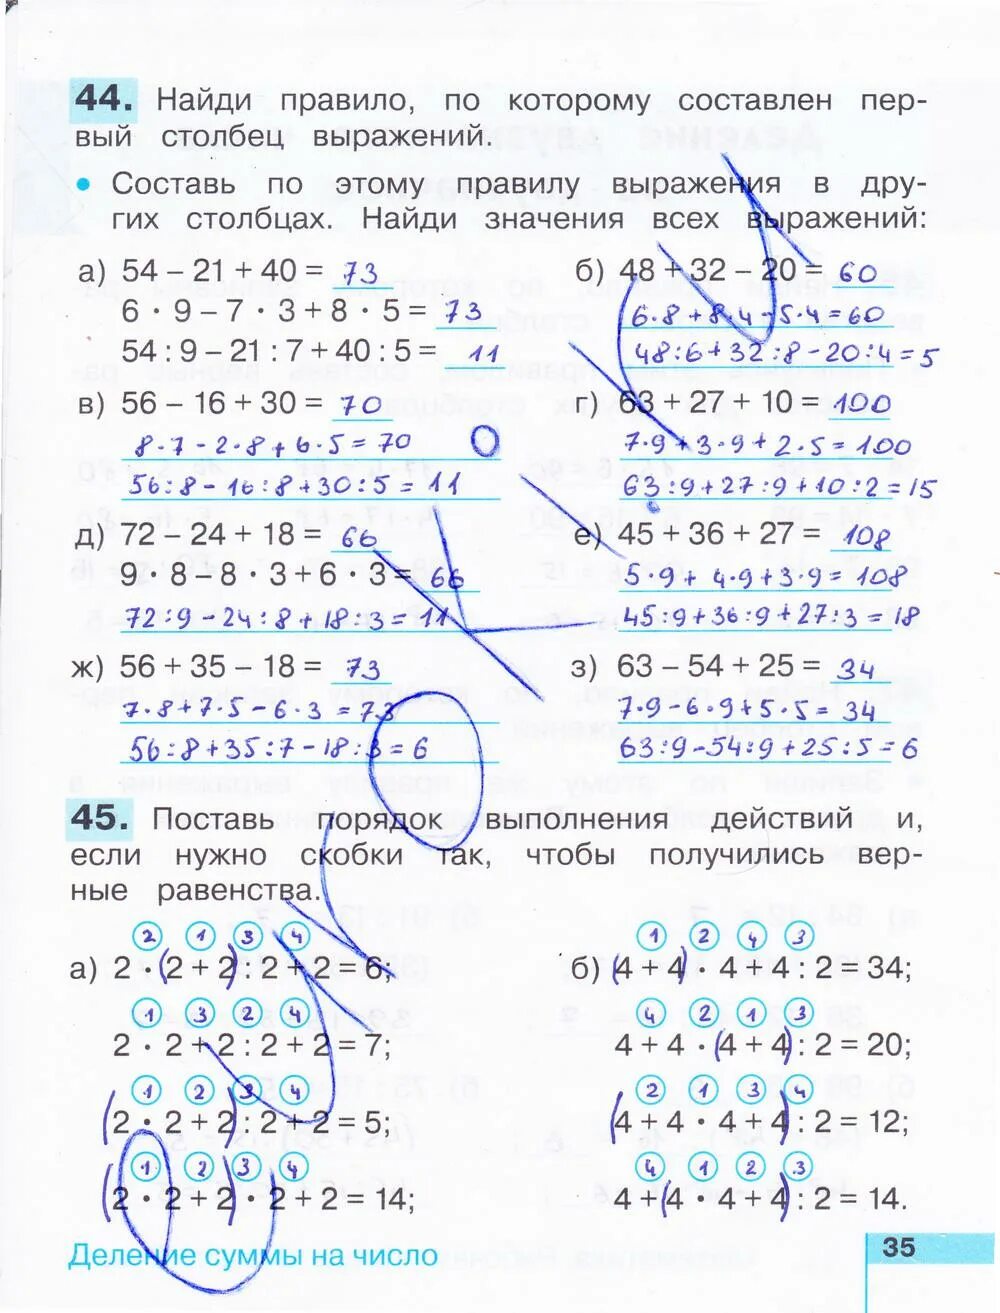 44. Найди правило, по которому составлен пер-
вый столбец выражений.
• Составь по этому правилу выражения в дру-
гих столбцах. Найди значения всех выражений:
а) 54 – 21 + 40 = 73
6 · 9 – 7 · 3 + 8 · 5 = 73
54 : 9 – 21 : 7 + 40 : 5 = 11
б) 48 + 32 – 20 = 60
6·8 + 8·4 - 5·4 = 60
48:6 + 32:8 - 20:4 = 5
в) 56 – 16 + 30 = 70
8·7 - 2·8 + 6·5 = 70
56:8 - 16:8 + 30:5 = 11
г) 63 + 27 + 10 = 100
7·9 + 3·9 + 2·5 = 100
63:9 + 27:9 + 10:2 = 15
д) 72 – 24 + 18 = 66
9 · 8 – 8 · 3 + 6 · 3 = 66
72:9 - 24:8 + 18:3 = 11
е) 45 + 36 + 27 = 108
5·9 + 4·9 + 3·9 = 108
45:9 + 36:9 + 27:3 = 18
ж) 56 + 35 – 18 = 73
7·8 + 7·5 - 6·3 = 73
56:8 + 35:7 - 18:3 = 6
з) 63 – 54 + 25 = 34
7·9 - 6·9 + 5·5 = 34
63:9 - 54:9 + 25:5 = 6
45. Поставь порядок выполнения действий и,
если нужно скобки так, чтобы получились вер-
ные равенства.
2 1 3 4
а) 2 · (2 + 2) : 2 + 2 = 6;
1 3 2 4
2 · 2 + 2 : 2 + 2 = 7;
1 2 3 4
(2 · 2 + 2) : 2 + 2 = 5;
1 2 3 4
(2 · 2 + 2) · 2 + 2 = 14;
1 2 4 3
б) (4 + 4) · 4 + 4 : 2 = 34;
4 2 1 3
4 + 4 · (4 + 4) : 2 = 20;
2 1 3 4
(4 + 4 · 4 + 4) : 2 = 12;
4 1 2 3
4 + (4 · 4 + 4) : 2 = 14.
Деление суммы на число
35